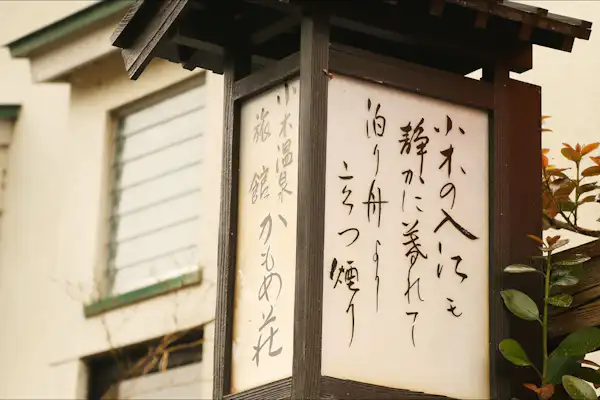 小木の入江も
静かに暮れて
泊り舟より
立つ煙り
小木温泉
旅館かもめ荘